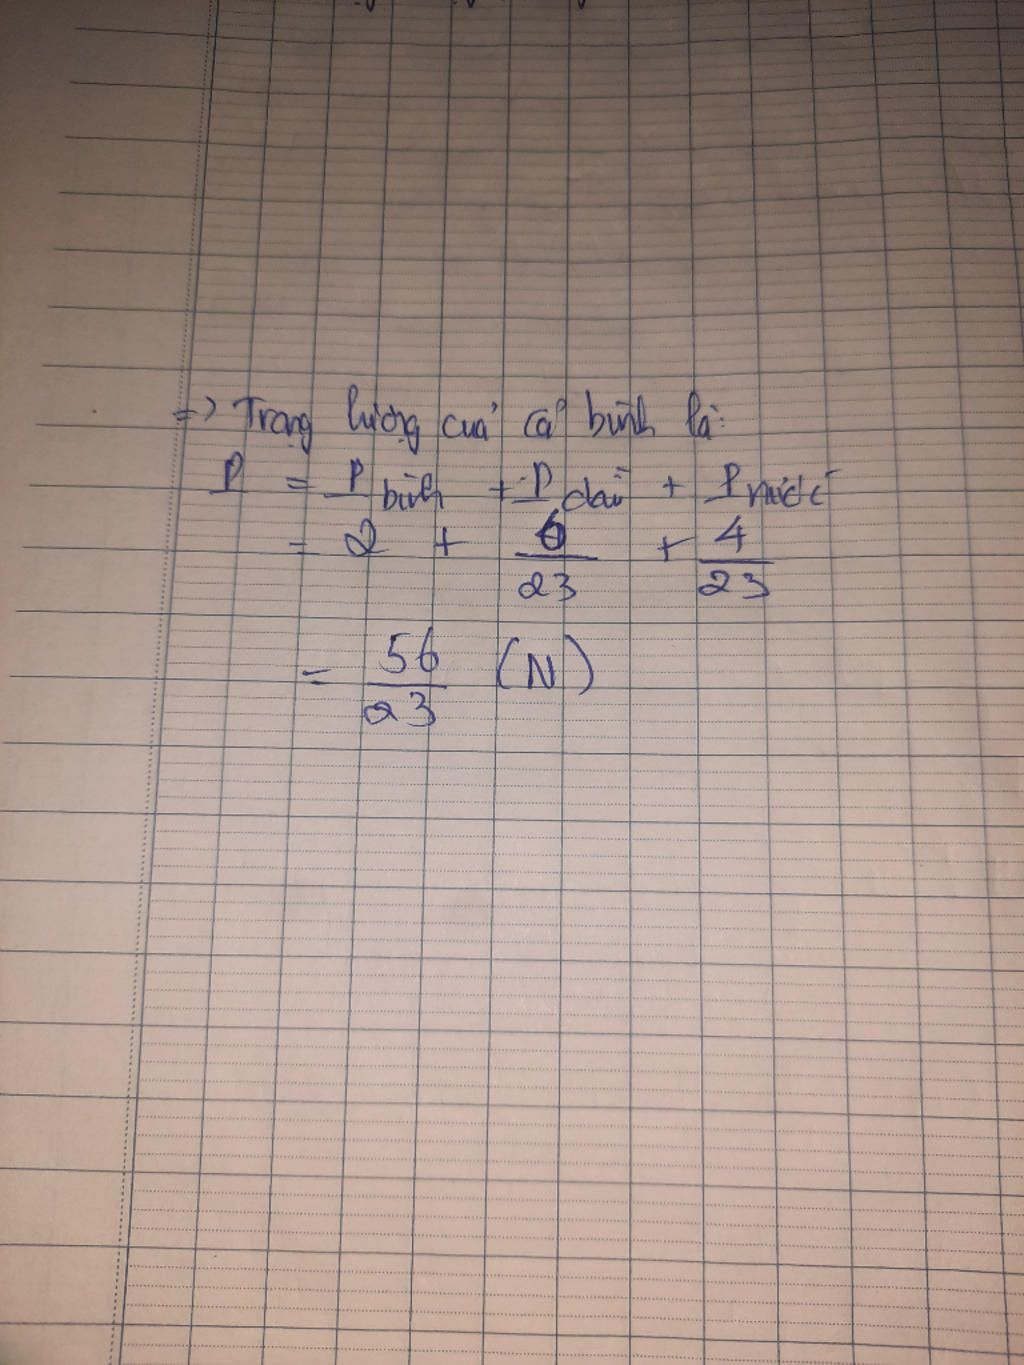 => Trọng lượng của cả bình là:
P = P bình + P dầu + P nước
= 2 + 6/23 + 4/23
= 56/23 (N)